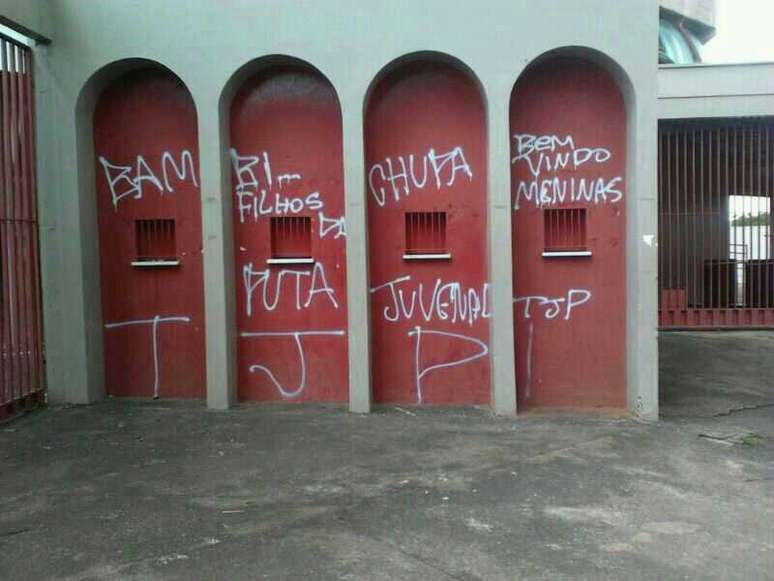 BAM
T
BI...
FILHOS
DA
PUTA
J
CHUPA
JUVENAL
P
BEM
VINDO
MENINAS
TJP